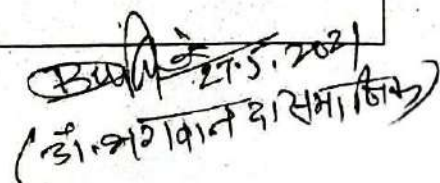 27.5.2021
(डॉ. भगवान दास मानिक)